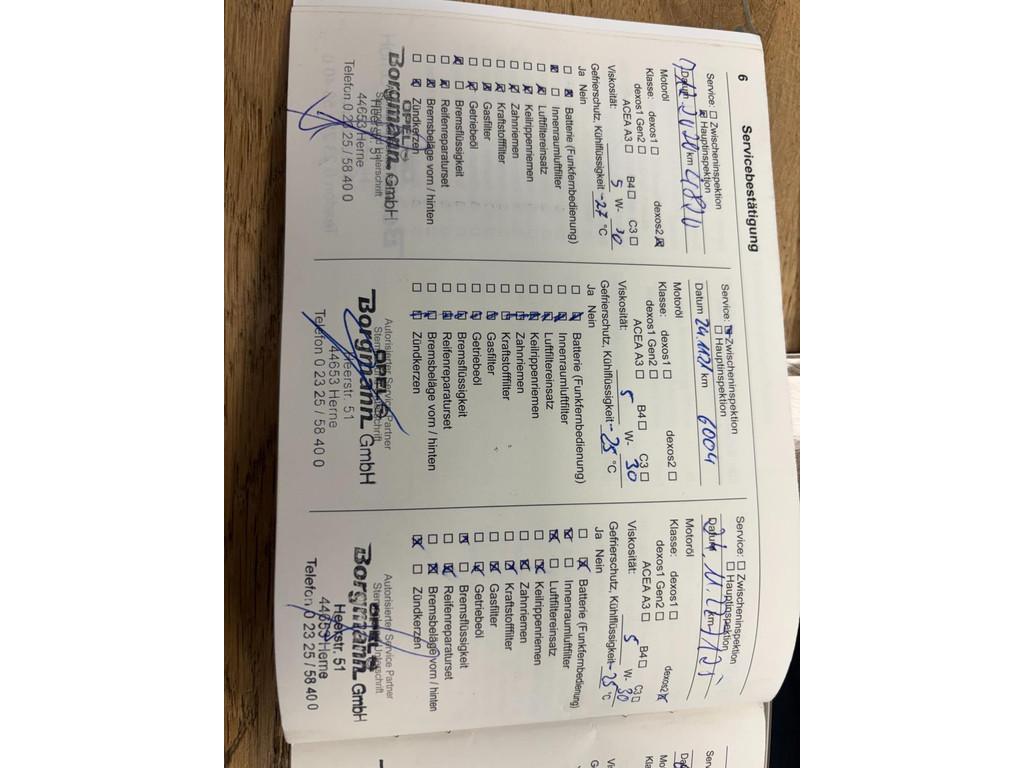 6
Servicebestätigung
Service: ☐ Zwischeninspektion
☒ Hauptinspektion
Datum 2020 km 4820
Motoröl
Klasse: dexos1 ☐ dexos2 ☒
dexos1 Gen2 ☐
ACEA A3 ☐ B4 ☐ C3 ☐
Viskosität: 5 W- 30
Gefrierschutz, Kühlflüssigkeit -27 °C
Ja Nein
☐ ☒ Batterie (Funkfernbedienung)
☒ ☐ Innenraumluftfilter
☐ ☒ Luftfiltereinsatz
☐ ☒ Keilrippenriemen
☐ ☒ Zahnriemen
☐ ☒ Kraftstofffilter
☐ ☒ Gasfilter
☐ ☒ Getriebeöl
☒ ☐ Bremsflüssigkeit
☐ ☒ Reifenreparaturset
☐ ☒ Bremsbeläge vorn / hinten
☐ ☒ Zündkerzen
OPEL
Borgmann GmbH
Heerstr. 51
44653 Herne
Telefon 0 23 25 / 58 40 0
Service: ☒ Zwischeninspektion
☐ Hauptinspektion
Datum 24.11.21 km 6004
Motoröl
Klasse: dexos1 ☐ dexos2 ☐
dexos1 Gen2 ☐
ACEA A3 ☐ B4 ☐ C3 ☐
Viskosität: 5 W- 30
Gefrierschutz, Kühlflüssigkeit -25 °C
Ja Nein
☐ ☒ Batterie (Funkfernbedienung)
☐ ☒ Innenraumluftfilter
☐ ☒ Luftfiltereinsatz
☐ ☒ Keilrippenriemen
☐ ☒ Zahnriemen
☐ ☒ Kraftstofffilter
☐ ☒ Gasfilter
☐ ☒ Getriebeöl
☐ ☒ Bremsflüssigkeit
☐ ☒ Reifenreparaturset
☐ ☒ Bremsbeläge vorn / hinten
☐ ☒ Zündkerzen
Autorisierter Service Partner
OPEL
Borgmann GmbH
Heerstr. 51
44653 Herne
Telefon 0 23 25 / 58 40 0
Service: ☐ Zwischeninspektion
☐ Hauptinspektion
Datum km
Motoröl
Klasse: dexos1 ☐ dexos2 ☒
dexos1 Gen2 ☐
ACEA A3 ☐ B4 ☐ C3 ☐
Viskosität: 5 W- 30
Gefrierschutz, Kühlflüssigkeit -25 °C
Ja Nein
☐ ☒ Batterie (Funkfernbedienung)
☒ ☐ Innenraumluftfilter
☒ ☐ Luftfiltereinsatz
☐ ☒ Keilrippenriemen
☐ ☒ Zahnriemen
☐ ☒ Kraftstofffilter
☐ ☒ Gasfilter
☐ ☒ Getriebeöl
☒ ☐ Bremsflüssigkeit
☐ ☒ Reifenreparaturset
☐ ☒ Bremsbeläge vorn / hinten
☒ ☐ Zündkerzen
Autorisierter Service Partner
OPEL
Borgmann GmbH
Heerstr. 51
44653 Herne
Telefon 0 23 25 / 58 40 0